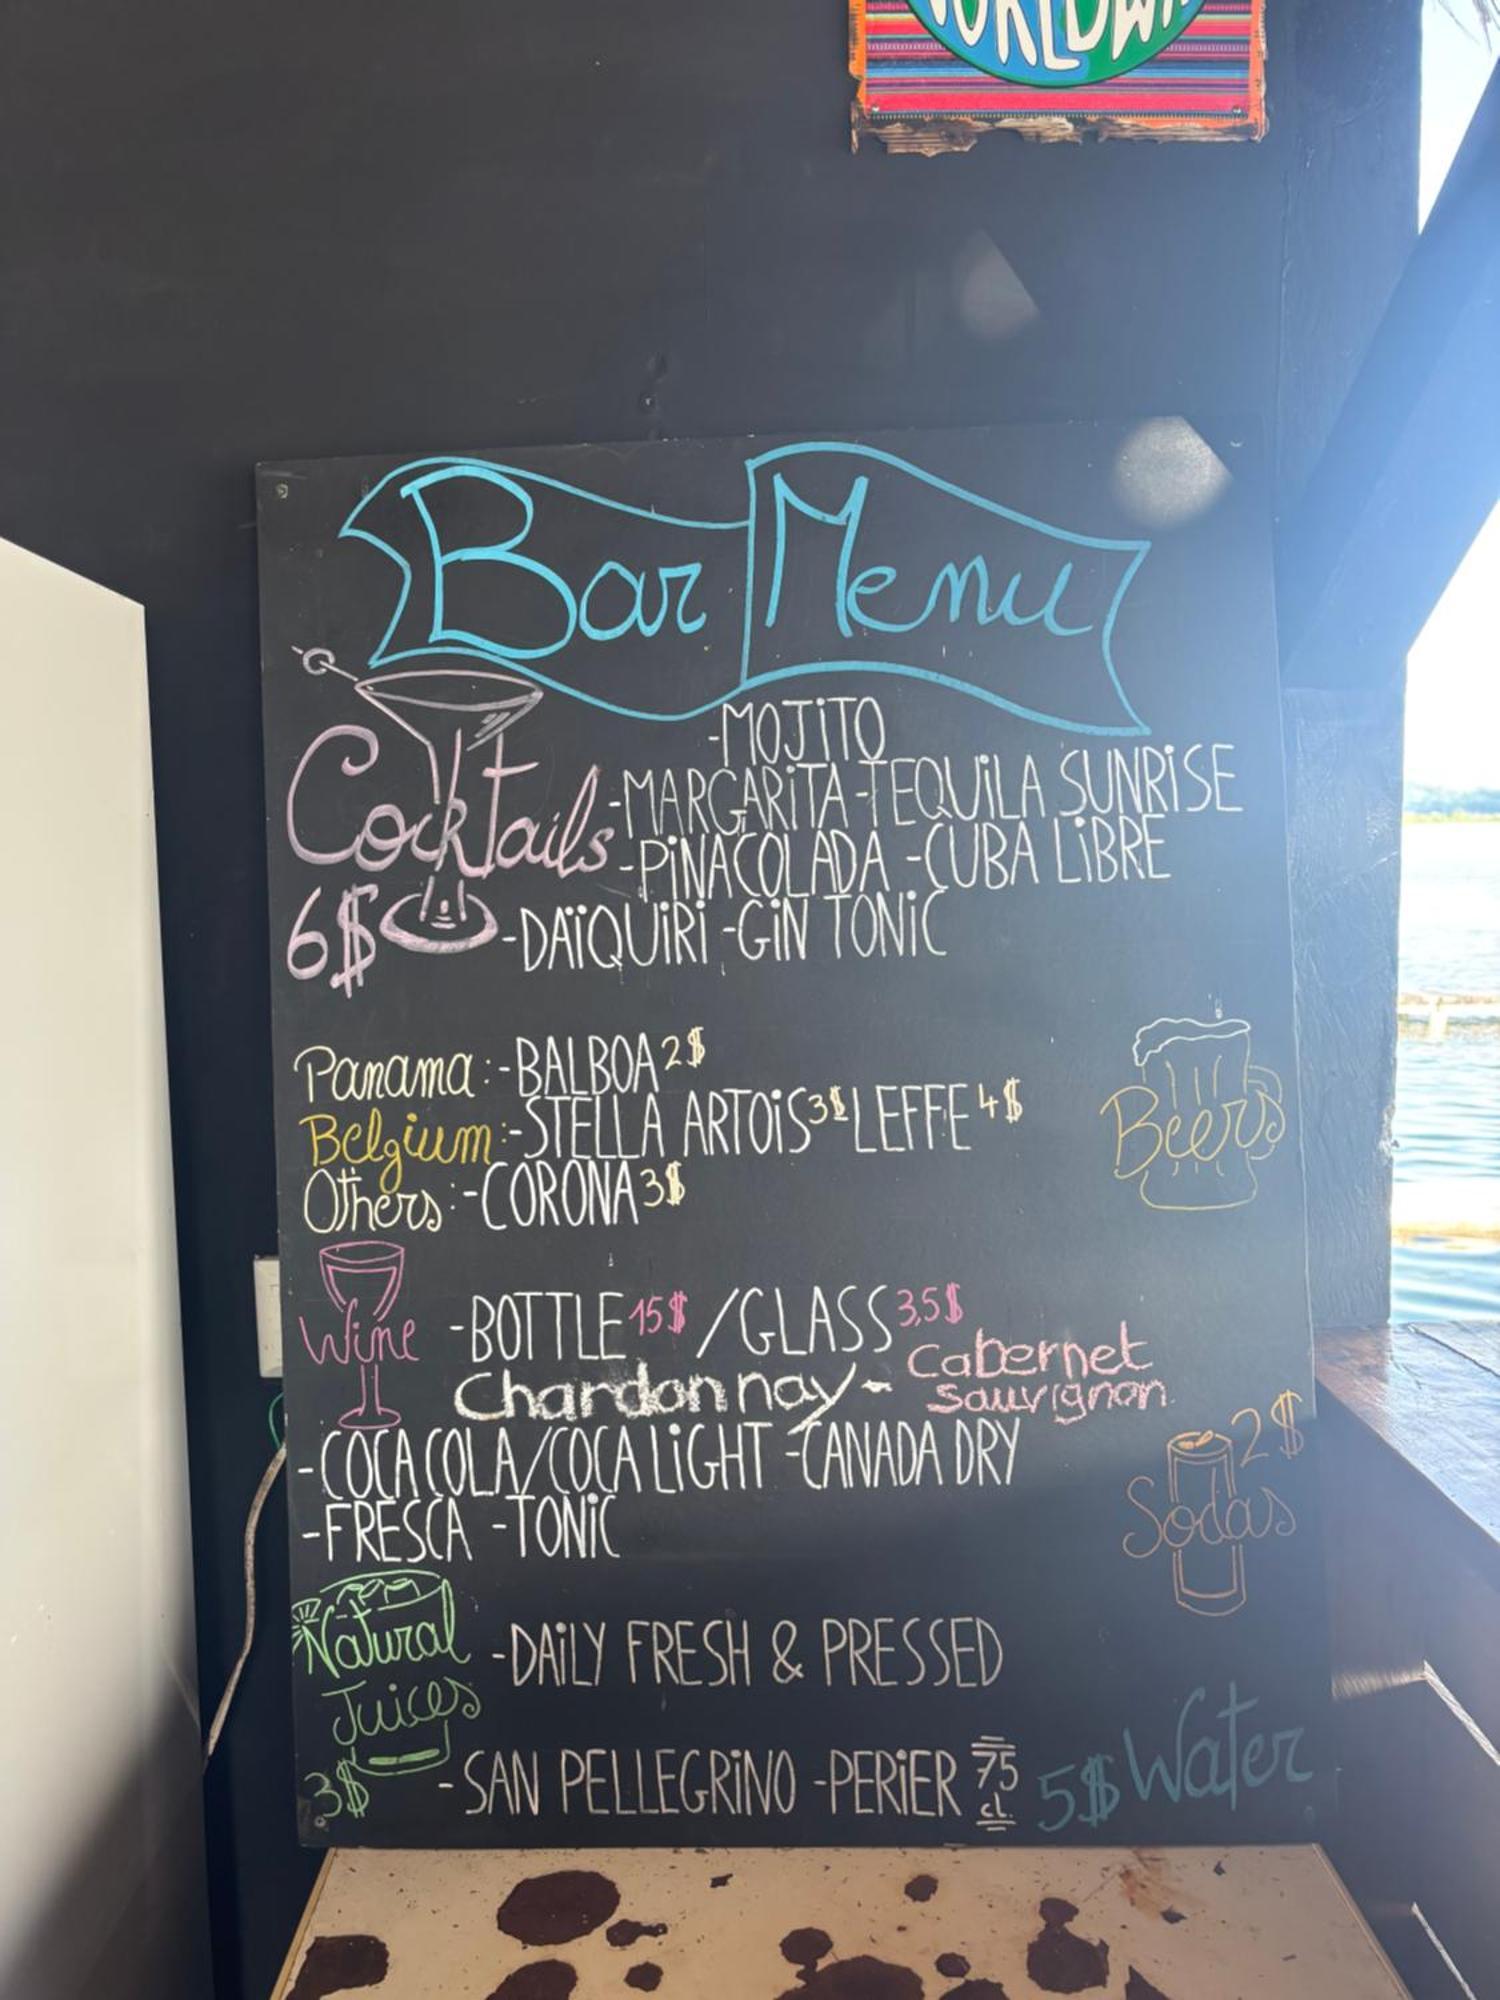 WORLDWI
Bar Menu
Cocktails
6$
-MOJiTO
-MARGARiTA -TEQUiLA SUNRiSE
-PiNACOLADA -CUBA LiBRE
-DAÏQUiRi -GiN TONiC
Beers
Panama: -BALBOA 2$
Belgium: -STELLA ARTOiS 3$ LEFFE 4$
Others: -CORONA 3$
Wine -BOTTLE 15$ /GLASS 3,5$
Chardonnay - Cabernet
Sauvignon.
Sodas 2$
-COCA COLA/COCA LiGHT -CANADA DRY
-FRESCA -TONiC
Natural
Juices
3$
-DAiLY FRESH & PRESSED
-SAN PELLEGRiNO -PERiER 75 cl. 5$ Water